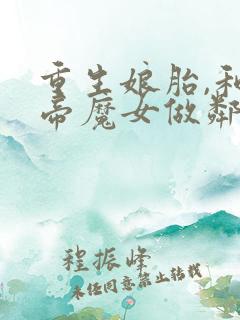 重生娘胎,和
帝魔女做鄰
程振峰
未任同意禁止转载